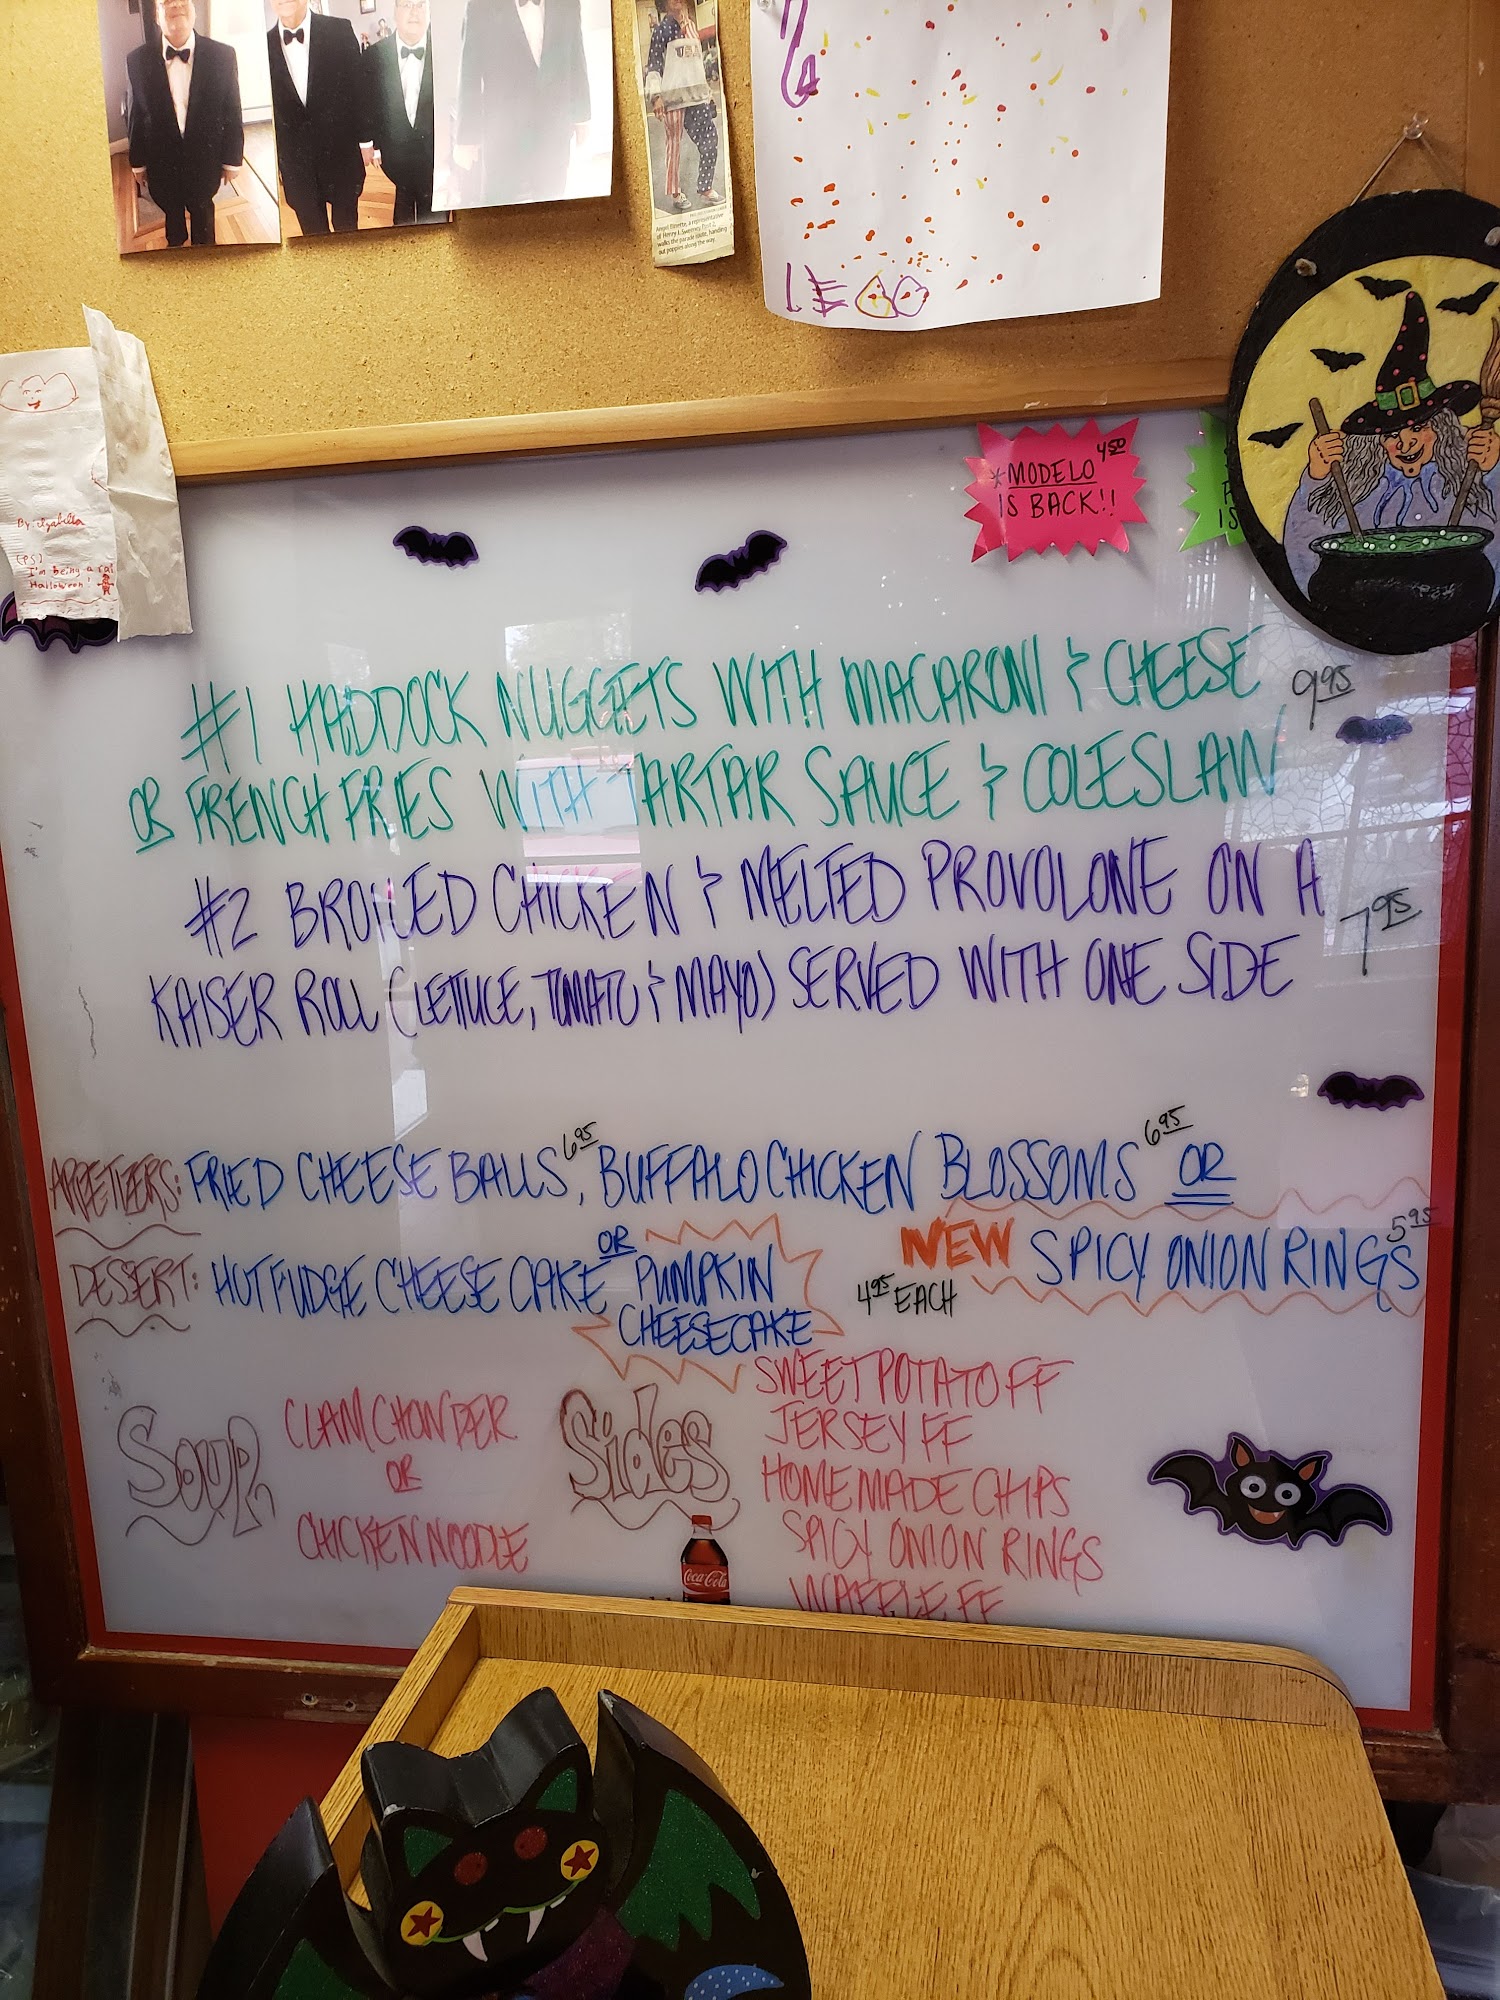 Angel Birette, a representative
of Henry J. Sweeney Post 2,
walks the parade route, handing
out poppies along the way.
LEO
By: Izabella
(PS)
I'm being a cat
Halloween!
*MODELO 4.50
IS BACK!!
IS
#1 HADDOCK NUGGETS WITH MACARONI & CHEESE 9.95
OR FRENCH FRIES WITH TARTAR SAUCE & COLESLAW
#2 BROILED CHICKEN & MELTED PROVOLONE ON A 7.95
KAISER ROLL (LETTUCE, TOMATO & MAYO) SERVED WITH ONE SIDE
APPETIZERS: FRIED CHEESE BALLS 6.95, BUFFALO CHICKEN BLOSSOMS 6.95 OR
NEW SPICY ONION RINGS 5.95
DESSERT: HOT FUDGE CHEESE CAKE OR PUMPKIN
CHEESECAKE
4.95 EACH
Soup
CLAM CHOWDER
OR
CHICKEN NOODLE
Sides
SWEET POTATO FF
JERSEY FF
HOMEMADE CHIPS
SPICY ONION RINGS
WAFFLE FF
Coca-Cola